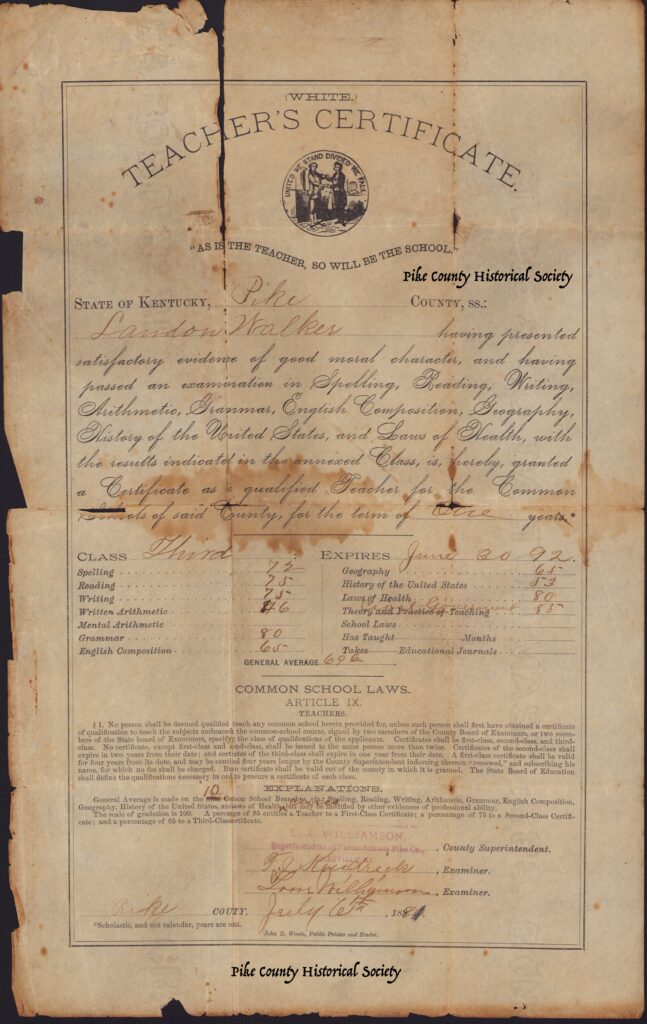 (WHITE.)
TEACHER'S CERTIFICATE.
UNITED WE STAND DIVIDED WE FALL
"AS IS THE TEACHER, SO WILL BE THE SCHOOL."
Pike County Historical Society
STATE OF KENTUCKY, Pike COUNTY, SS.:
Landon Walker having presented
satisfactory evidence of good moral character, and having
passed an examination in Spelling, Reading, Writing,
Arithmetic, Grammar, English Composition, Geography,
History of the United States, and Laws of Health, with
the results indicated in the annexed Class, is, hereby, granted
a Certificate as a qualified Teacher for the Common
Schools of said County, for the term of One years.*
CLASS Third
Spelling 72
Reading 75
Writing 75
Written Arithmetic 46
Mental Arithmetic
Grammar 80
English Composition 65
EXPIRES June 30 92.
Geography 65
History of the United States 53
Laws of Health 80
Theory and Practice of Teaching 85
School Laws
Has Taught Months
Takes Educational Journals
GENERAL AVERAGE
COMMON SCHOOL LAWS.
ARTICLE IX.
TEACHERS.
§ 1. No person shall be deemed qualified teach any common school herein provided for, unless such person shall first have obtained a certificate
of qualification to teach the subjects embraced the common-school course, signed by two members of the County Board of Examiners, or two mem-
bers of the State board of Examiners, specifyg the class of qualifications of the applicants. Certificates shall be first-class, second-class, and third-
class. No certificate, except first-class and cond-class, shall be issued to the same person more than twice. Certificates of the second-class shall
expire in two years from their date; and certates of the third-class shall expire in one year from their date. A first-class certificate shall be valid
for four years from its date, and may be contied four years longer by the County Superintendent indorsing thereon "renewed," and subscribing his
name, for which no fee shall be charged. certificate shall be valid out of the county in which it is granted. The State Board of Education
shall define the qualifications necessary in ord to procure a certificate of each class.
EXPLANATIONS.
10
General Average is made on the School Branches, viz: Spelling, Reading, Writing, Arithmetic, Grammar, English Composition,
Geography, History of the United States, and laws of Health, but may be included by other evidences of professional ability.
The scale of gradation is 100. A percentage of 85 entitles a Teacher to a First-Class Certificate; a percentage of 75 to a Second-Class Certifi-
cate; and a percentage of 65 to a Third-Class certificate.
WILLIAMSON,
Superintendent of Public Schools Pike Co.,
, County Superintendent.
, Examiner.
, Examiner.
Pike COUTY, July 6th, 189
*Scholastic, and not calendar, years are meant.
John D. Woods, Public Printer and Binder.
Pike County Historical Society